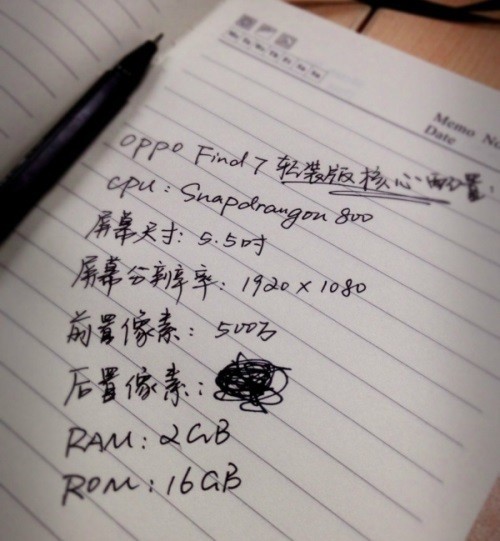 Mo Tu We Th Fr Sa Su
Memo No.
Date
OPPO Find 7 轻装版核心配置:
CPU: Snapdrangon 800
屏幕尺寸: 5.5吋
屏幕分辨率: 1920 x 1080
前置像素: 500万
后置像素:
RAM: 2GB
ROM: 16GB